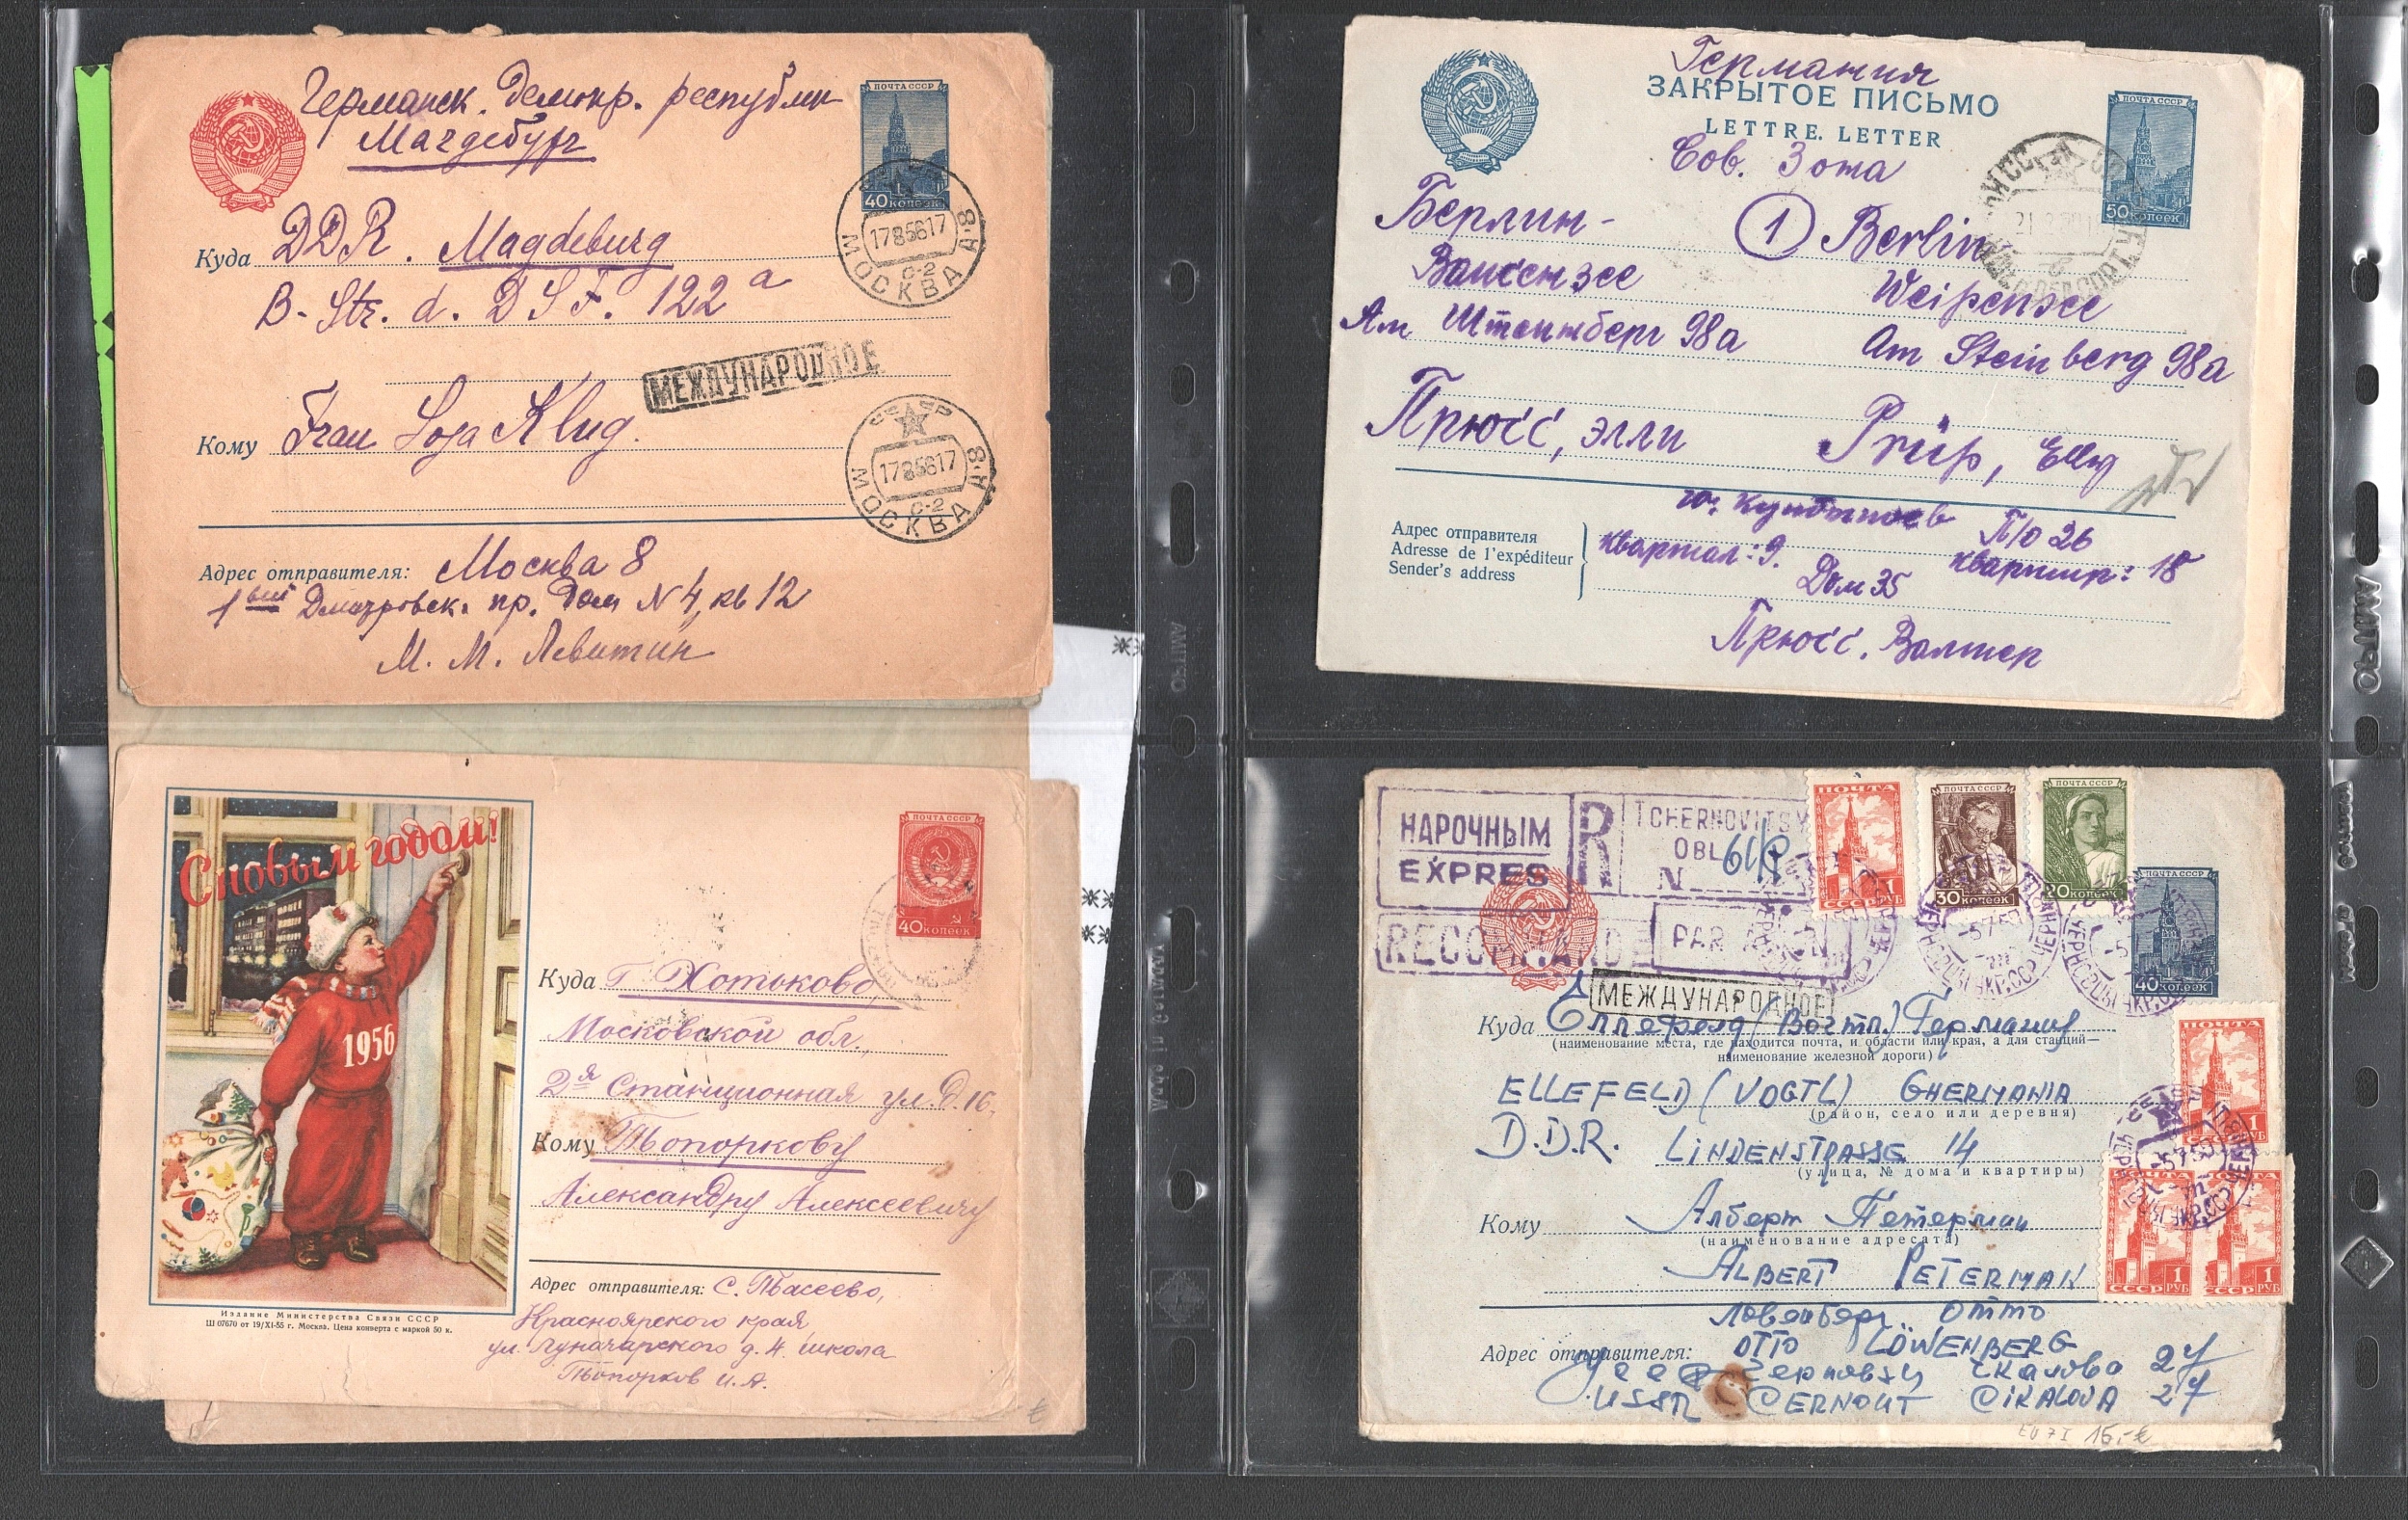 Германск. демокр. республик
Магдебург
ПОЧТА СССР
40 копеек
Куда DDR. Magdeburg
B-Str. d. DSF. 122 a
МОСКВА А-8
1785617
С-2
МЕЖДУНАРОДНОЕ
Кому Frau Klug.
СССР
МОСКВА А-8
1785617
С-2
Адрес отправителя: Москва 8
1 вый Дмитровск. пр. дом N 4, кв 12
М. М. Левитин
Германия
ЗАКРЫТОЕ ПИСЬМО
LETTRE. LETTER
ПОЧТА СССР
50 копеек
Сов. Зона
Берлин- 1 Berlin
Вайсензее Weißensee
Ам Штейнберг 98а Am Steinberg 98a
Прюсс, Элли Prüß, Elly
Адрес отправителя
Adresse de l'expéditeur
Sender's address
П/О 26
Квартал: 9. Квартир: 18
Дом 35
Прюсс, Валтер
С новым годом!
1956
Издание Министерства Связи СССР
Ш 07670 от 19/XI-55 г. Москва. Цена конверта с маркой 50 к.
ПОЧТА СССР
40 копеек
Куда Г Хотьково
Московской обл.,
2я Станционная ул. д. 16.
Кому Топоркову
Александру Алексеевичу
Адрес отправителя: с. Тасеево,
Красноярского края
ул. Луначарского д. 4. школа
Топорков И. А.
НАРОЧНЫМ
EXPRES
R
TCHERNOVITSY
OBL
N
RECOMMANDE
PAR AVION
МЕЖДУНАРОДНОЕ
ПОЧТА
СССР 1 РУБ
ПОЧТА СССР
30 копеек
ПОЧТА СССР
20 копеек
ПОЧТА СССР
40 копеек
Куда Еллефелд (Вогтл.) Германия
(наименование места, где находится почта, и области или края, а для станций—
наименование железной дороги)
ELLEFELD (VOGTL) GHERMANIA
(район, село или деревня)
D.D.R. LINDENSTRASSE 14
(улица, № дома и квартиры)
Кому Алберт Петерман
(наименование адресата)
ALBERT PETERMAN
ПОЧТА
СССР 1 РУБ
СССР 1 РУБ
СССР 1 РУБ
Ловенберг Отто
Адрес отправителя: OTTO LÖWENBERG
Черновцы Чкалова 27
USSR CERNOUT CIKALOVA 27
16,-€